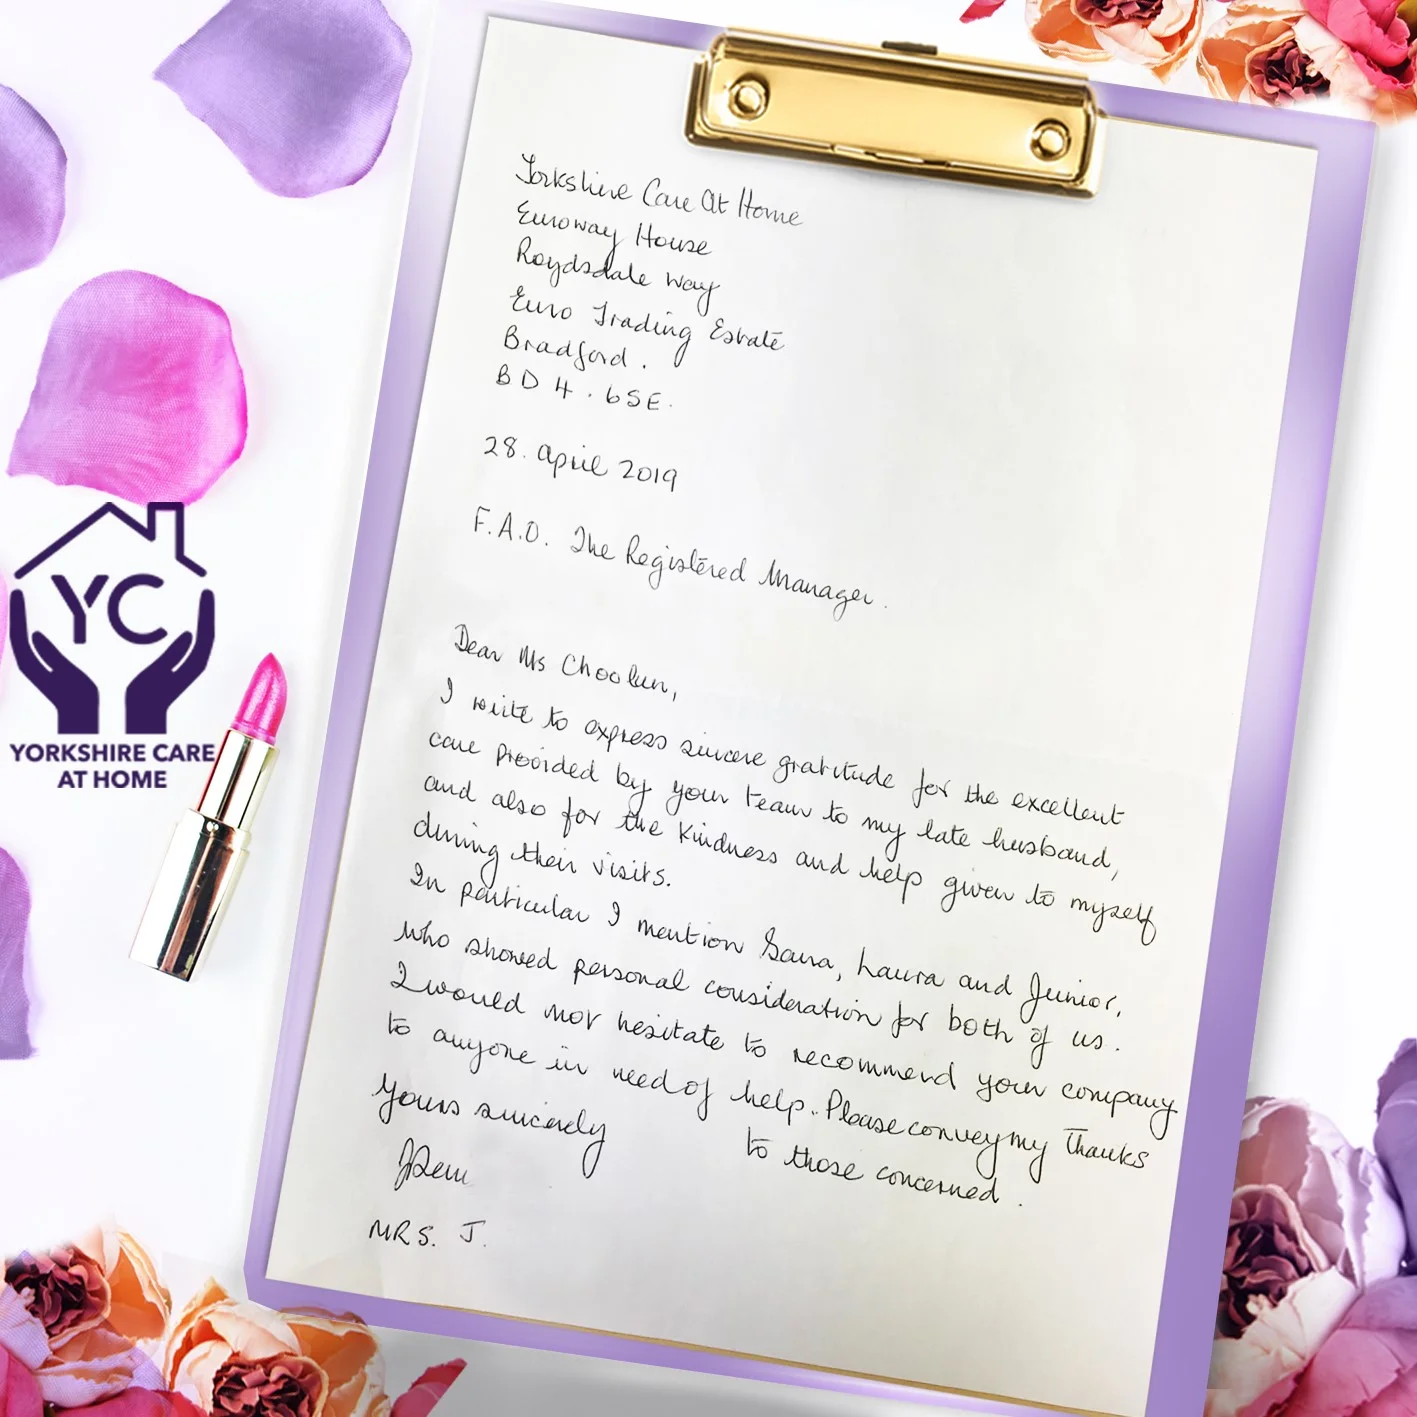 Yorkshire Care At Home
Euroway House
Roydsdale Way
Euro Trading Estate
Bradford.
BD4. 6SE.
28. April 2019
F.A.O. The Registered Manager.
Dear Ms Choolun,
I write to express sincere gratitude for the excellent
care provided by your team to my late husband,
and also for the kindness and help given to myself
during their visits.
In particular I mention Sara, Laura and Junior,
who showed personal consideration for both of us.
I would not hesitate to recommend your company
to anyone in need of help. Please convey my thanks
to those concerned.
Yours sincerely
MRS. J.
YC
YORKSHIRE CARE
AT HOME